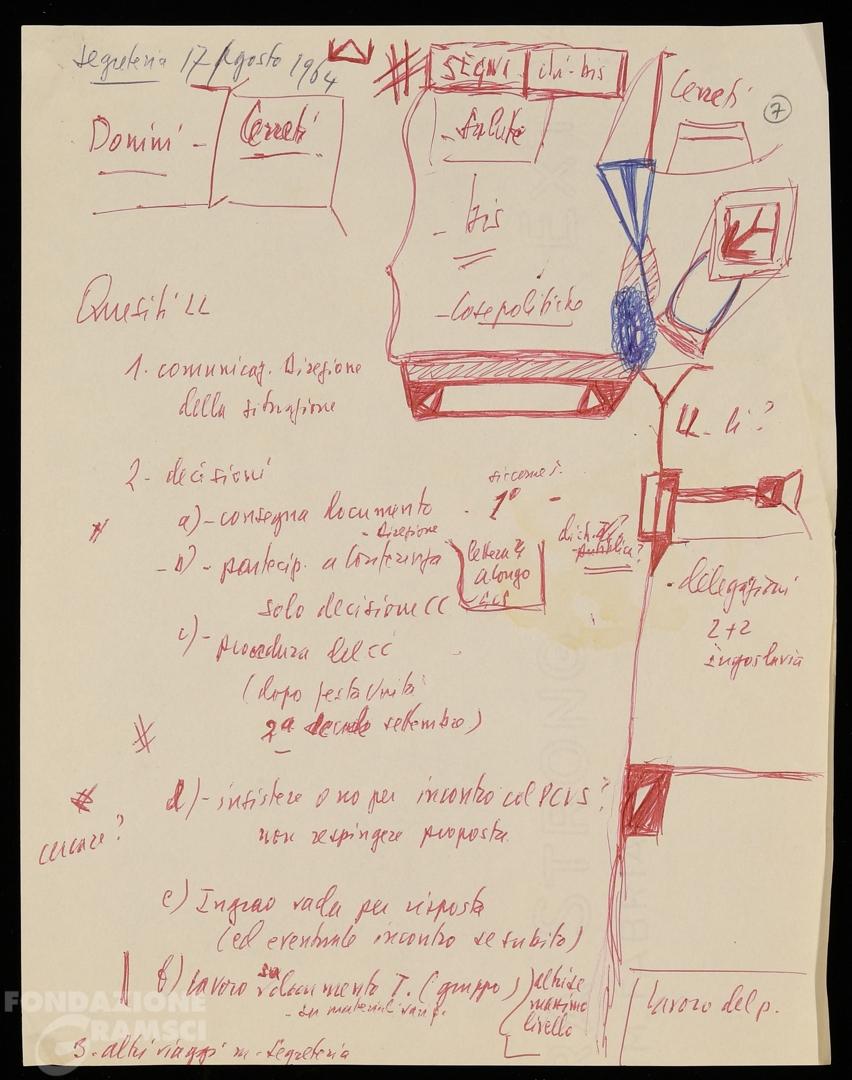 Segreteria 17 Agosto 1964
SEGNI
bis
Cerreti
7
Donini - Cerreti
- salute
- bis
- Cose politiche
Quesiti LL
1. comunicaz. Direzione
della situazione
LL - li?
2 - decisioni
a) - consegna documento - 1º -
- Direzione
- b) - partecip. a Conferenza
solo decisione CC
lettera
a Longo
pubblica?
c) - procedura del CC
(dopo festa Unità
2ª decade settembre)
• delegazioni
2 + 2
Jugoslavia
d) - insistere o no per incontro col PCUS?
non respingere proposta
cercare?
e) Ingrao vada per risposta
(ed eventuale incontro se subito)
f) lavoro su documento T. (gruppo)
- su materiali vari p.
altri se
massimo
livello
lavoro del p.
3. altri viaggi m. segreteria
FONDAZIONE
GRAMSCI